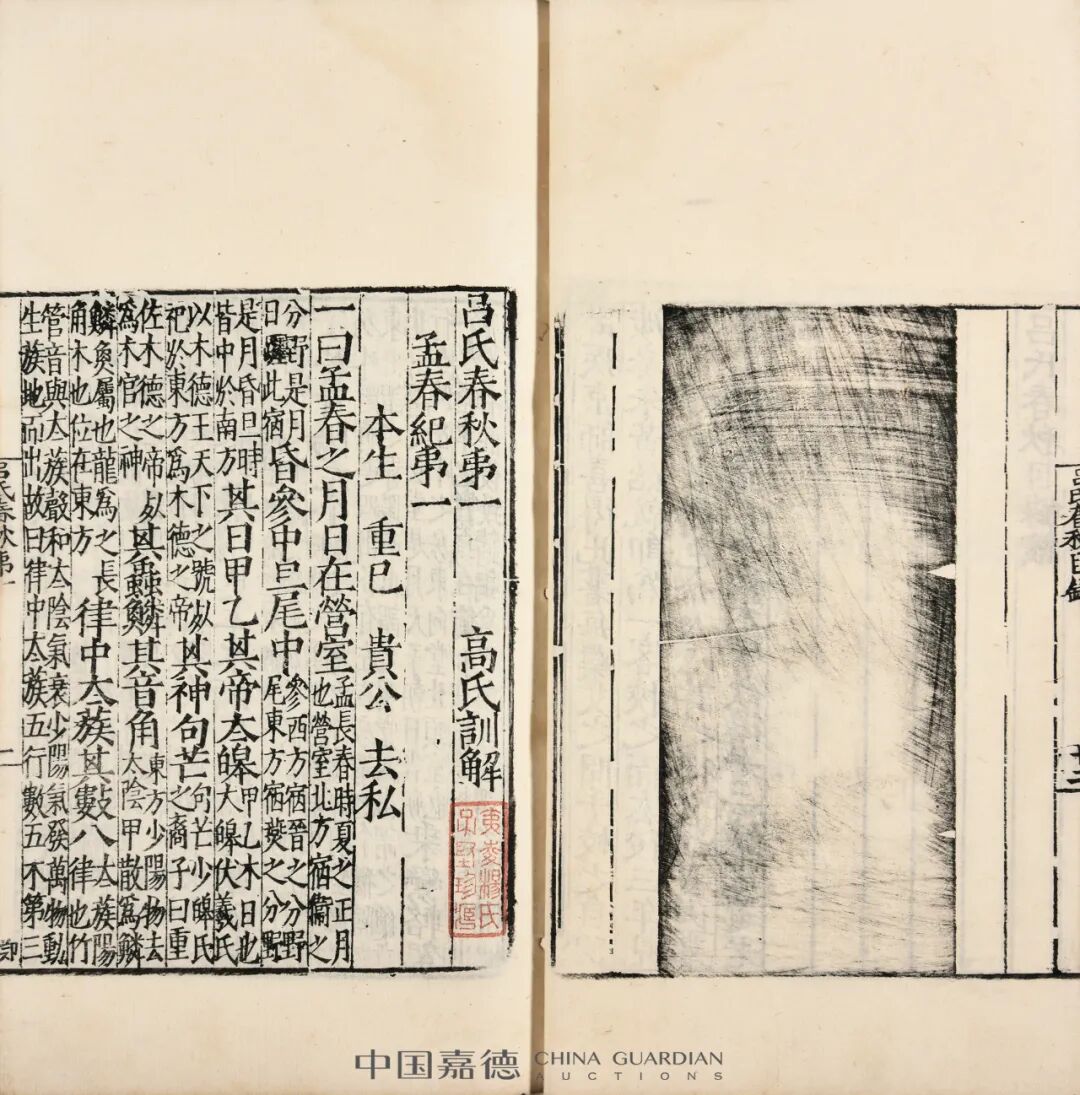 呂氏春秋目錄
廿二
呂氏春秋弟一　高氏訓解
孟春紀弟一
本生　重巳　貴公　去私
一曰孟春之月日在營室孟長春時夏之正月也營室北方宿衞之
分野是月日躔此宿昏參中旦尾中參西方宿晉之分野尾東方宿燕之分野
是月昏旦時皆中於南方其日甲乙其帝太皞甲乙木日也大皞伏羲氏
以木德王天下之號死祀於東方為木德之帝其神句芒句芒少皞氏之裔子曰重
佐木德之帝死為木官之神其蟲鱗其音角東方少陽物去太陰甲散為鱗
鱗魚屬也龍為之長角木也位在東方律中太蔟其數八太蔟陽律也竹
管音與太蔟聲和太陰氣衰少陽氣發萬物動生蔟地而出故曰律中太蔟五行數五不第三
呂氏春秋弟一
中国嘉德 CHINA GUARDIAN
AUCTIONS